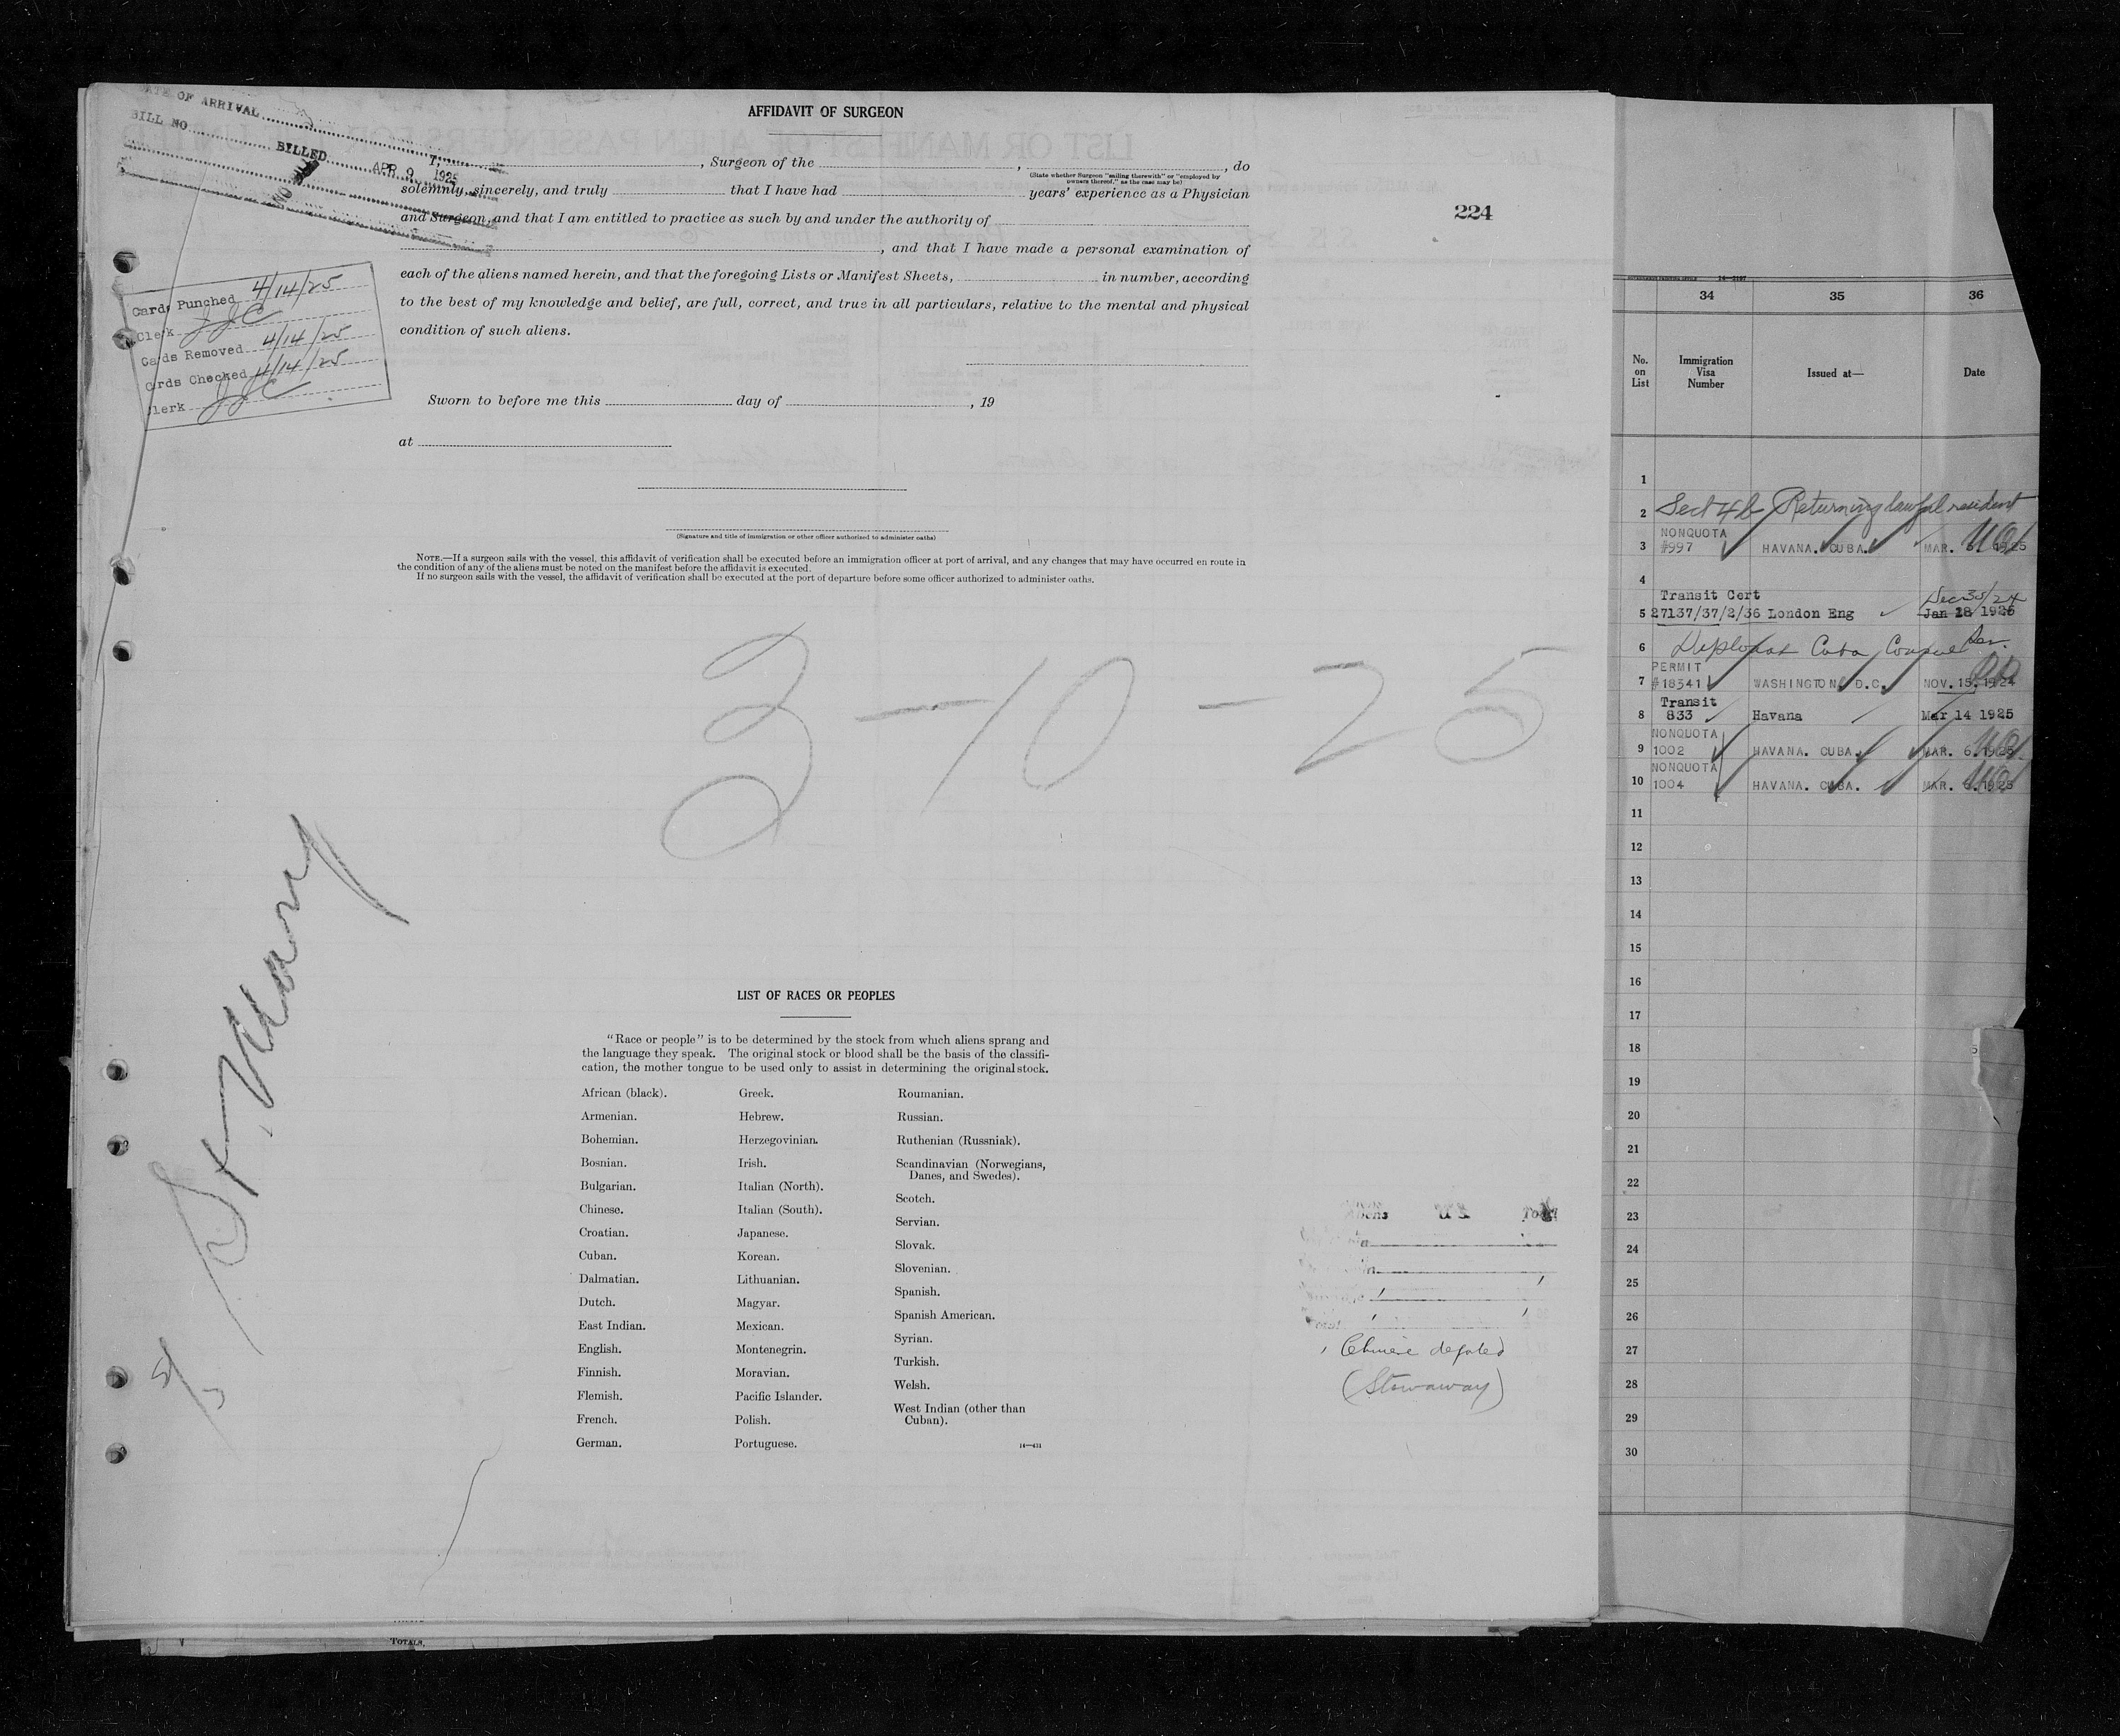 DATE OF ARRIVAL
BILL NO
BILLED APR 9 1925
Cards Punched 4/14/25
Clerk JJC
Cards Removed 4/14/25
Cards Checked 4/14/25
Clerk JJC
AFFIDAVIT OF SURGEON
I, , Surgeon of the , , do
(State whether Surgeon "sailing therewith" or "employed by
owners thereof," as the case may be)
solemnly, sincerely, and truly that I have had years' experience as a Physician
and Surgeon, and that I am entitled to practice as such by and under the authority of
, and that I have made a personal examination of
each of the aliens named herein, and that the foregoing Lists or Manifest Sheets, in number, according
to the best of my knowledge and belief, are full, correct, and true in all particulars, relative to the mental and physical
condition of such aliens.
Sworn to before me this day of , 19
at
(Signature and title of immigration or other officer authorized to administer oaths)
NOTE.—If a surgeon sails with the vessel, this affidavit of verification shall be executed before an immigration officer at port of arrival, and any changes that may have occurred en route in
the condition of any of the aliens must be noted on the manifest before the affidavit is executed.
If no surgeon sails with the vessel, the affidavit of verification shall be executed at the port of departure before some officer authorized to administer oaths.
224
3-10-25
St Mary
LIST OF RACES OR PEOPLES
"Race or people" is to be determined by the stock from which aliens sprang and
the language they speak. The original stock or blood shall be the basis of the classifi-
cation, the mother tongue to be used only to assist in determining the original stock.
African (black).
Armenian.
Bohemian.
Bosnian.
Bulgarian.
Chinese.
Croatian.
Cuban.
Dalmatian.
Dutch.
East Indian.
English.
Finnish.
Flemish.
French.
German.
Greek.
Hebrew.
Herzegovinian.
Irish.
Italian (North).
Italian (South).
Japanese.
Korean.
Lithuanian.
Magyar.
Mexican.
Montenegrin.
Moravian.
Pacific Islander.
Polish.
Portuguese.
Roumanian.
Russian.
Ruthenian (Russniak).
Scandinavian (Norwegians,
Danes, and Swedes).
Scotch.
Servian.
Slovak.
Slovenian.
Spanish.
Spanish American.
Syrian.
Turkish.
Welsh.
West Indian (other than
Cuban).
14—431
Chinese
(Stowaway)
TOTALS,
34 35 36
No.
on
List
Immigration
Visa
Number
Issued at—
Date
1
2 Sect 4b Returning lawful resident
NONQUOTA
3 #997 HAVANA. CUBA. MAR. 6. 1925
4
Transit Cert Dec 30/24
5 27137/37/2/36 London Eng Jan 28 1926
6 Diplomat Cuba Consul
PERMIT
7 #18341 WASHINGTON D.C. NOV. 15. 1924
Transit
8 833 Havana Mar 14 1925
NONQUOTA
9 1002 HAVANA. CUBA. MAR. 6. 1925
NONQUOTA
10 1004 HAVANA. CUBA. MAR. 6. 1925
11
12
13
14
15
16
17
18
19
20
21
22
23
24
25
26
27
28
29
30